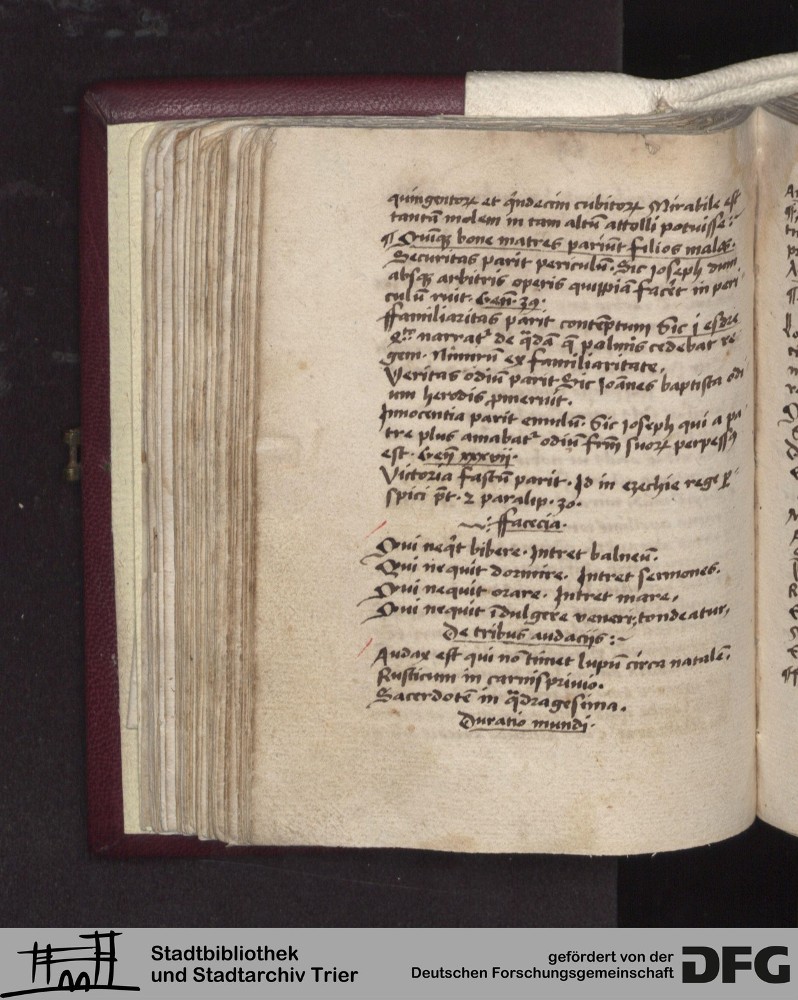 quingentoꝝ et q̃ndecim cubitoꝝ Mirabile est
tantã molem in tam altũ attolli potuisse :~
¶ Quinqꝫ bone matres pariũt filios malos.
Securitas parit periculũ. Sic Joseph dum
absqꝫ arbitris operis quippiã facẽt in peri
culũ ruit. Geñ. 39.
ffamiliaritas parit contẽptum Sic j esdre
4to narratr de q̃dã q̃ palmis cedebat re
gem. Nimirũ ex familiaritate.
Veritas odiũ parit Sic Joãnes baptista odi
um herodis ꝓmeruit.
Innocentia parit emulũ. Sic Joseph qui a pa
tre plus amabatr odiũ frm̃ suoꝝ perpessꝰ
est. Geñ xxxvij.
Victoria fastũ parit. Id in ezechie rege ꝑ
spici pt̃. 2 paralip. 30.
~: ffacecia.
Qui neq̃t bibere. Intret balneũ.
Qui nequit dormire. Intret sermones.
Qui nequit orare. Intret mare.
Qui nequit ĩdulgere veneri, tondeatur,
De tribus audacijs :~
Audax est qui nõ timet lupũ circa natalẽ.
Rusticum in carnisprivio.
Sacerdotẽ in q̃dragesima.
Duratio mundi.
Stadtbibliothek
und Stadtarchiv Trier
gefördert von der
Deutschen Forschungsgemeinschaft
DFG